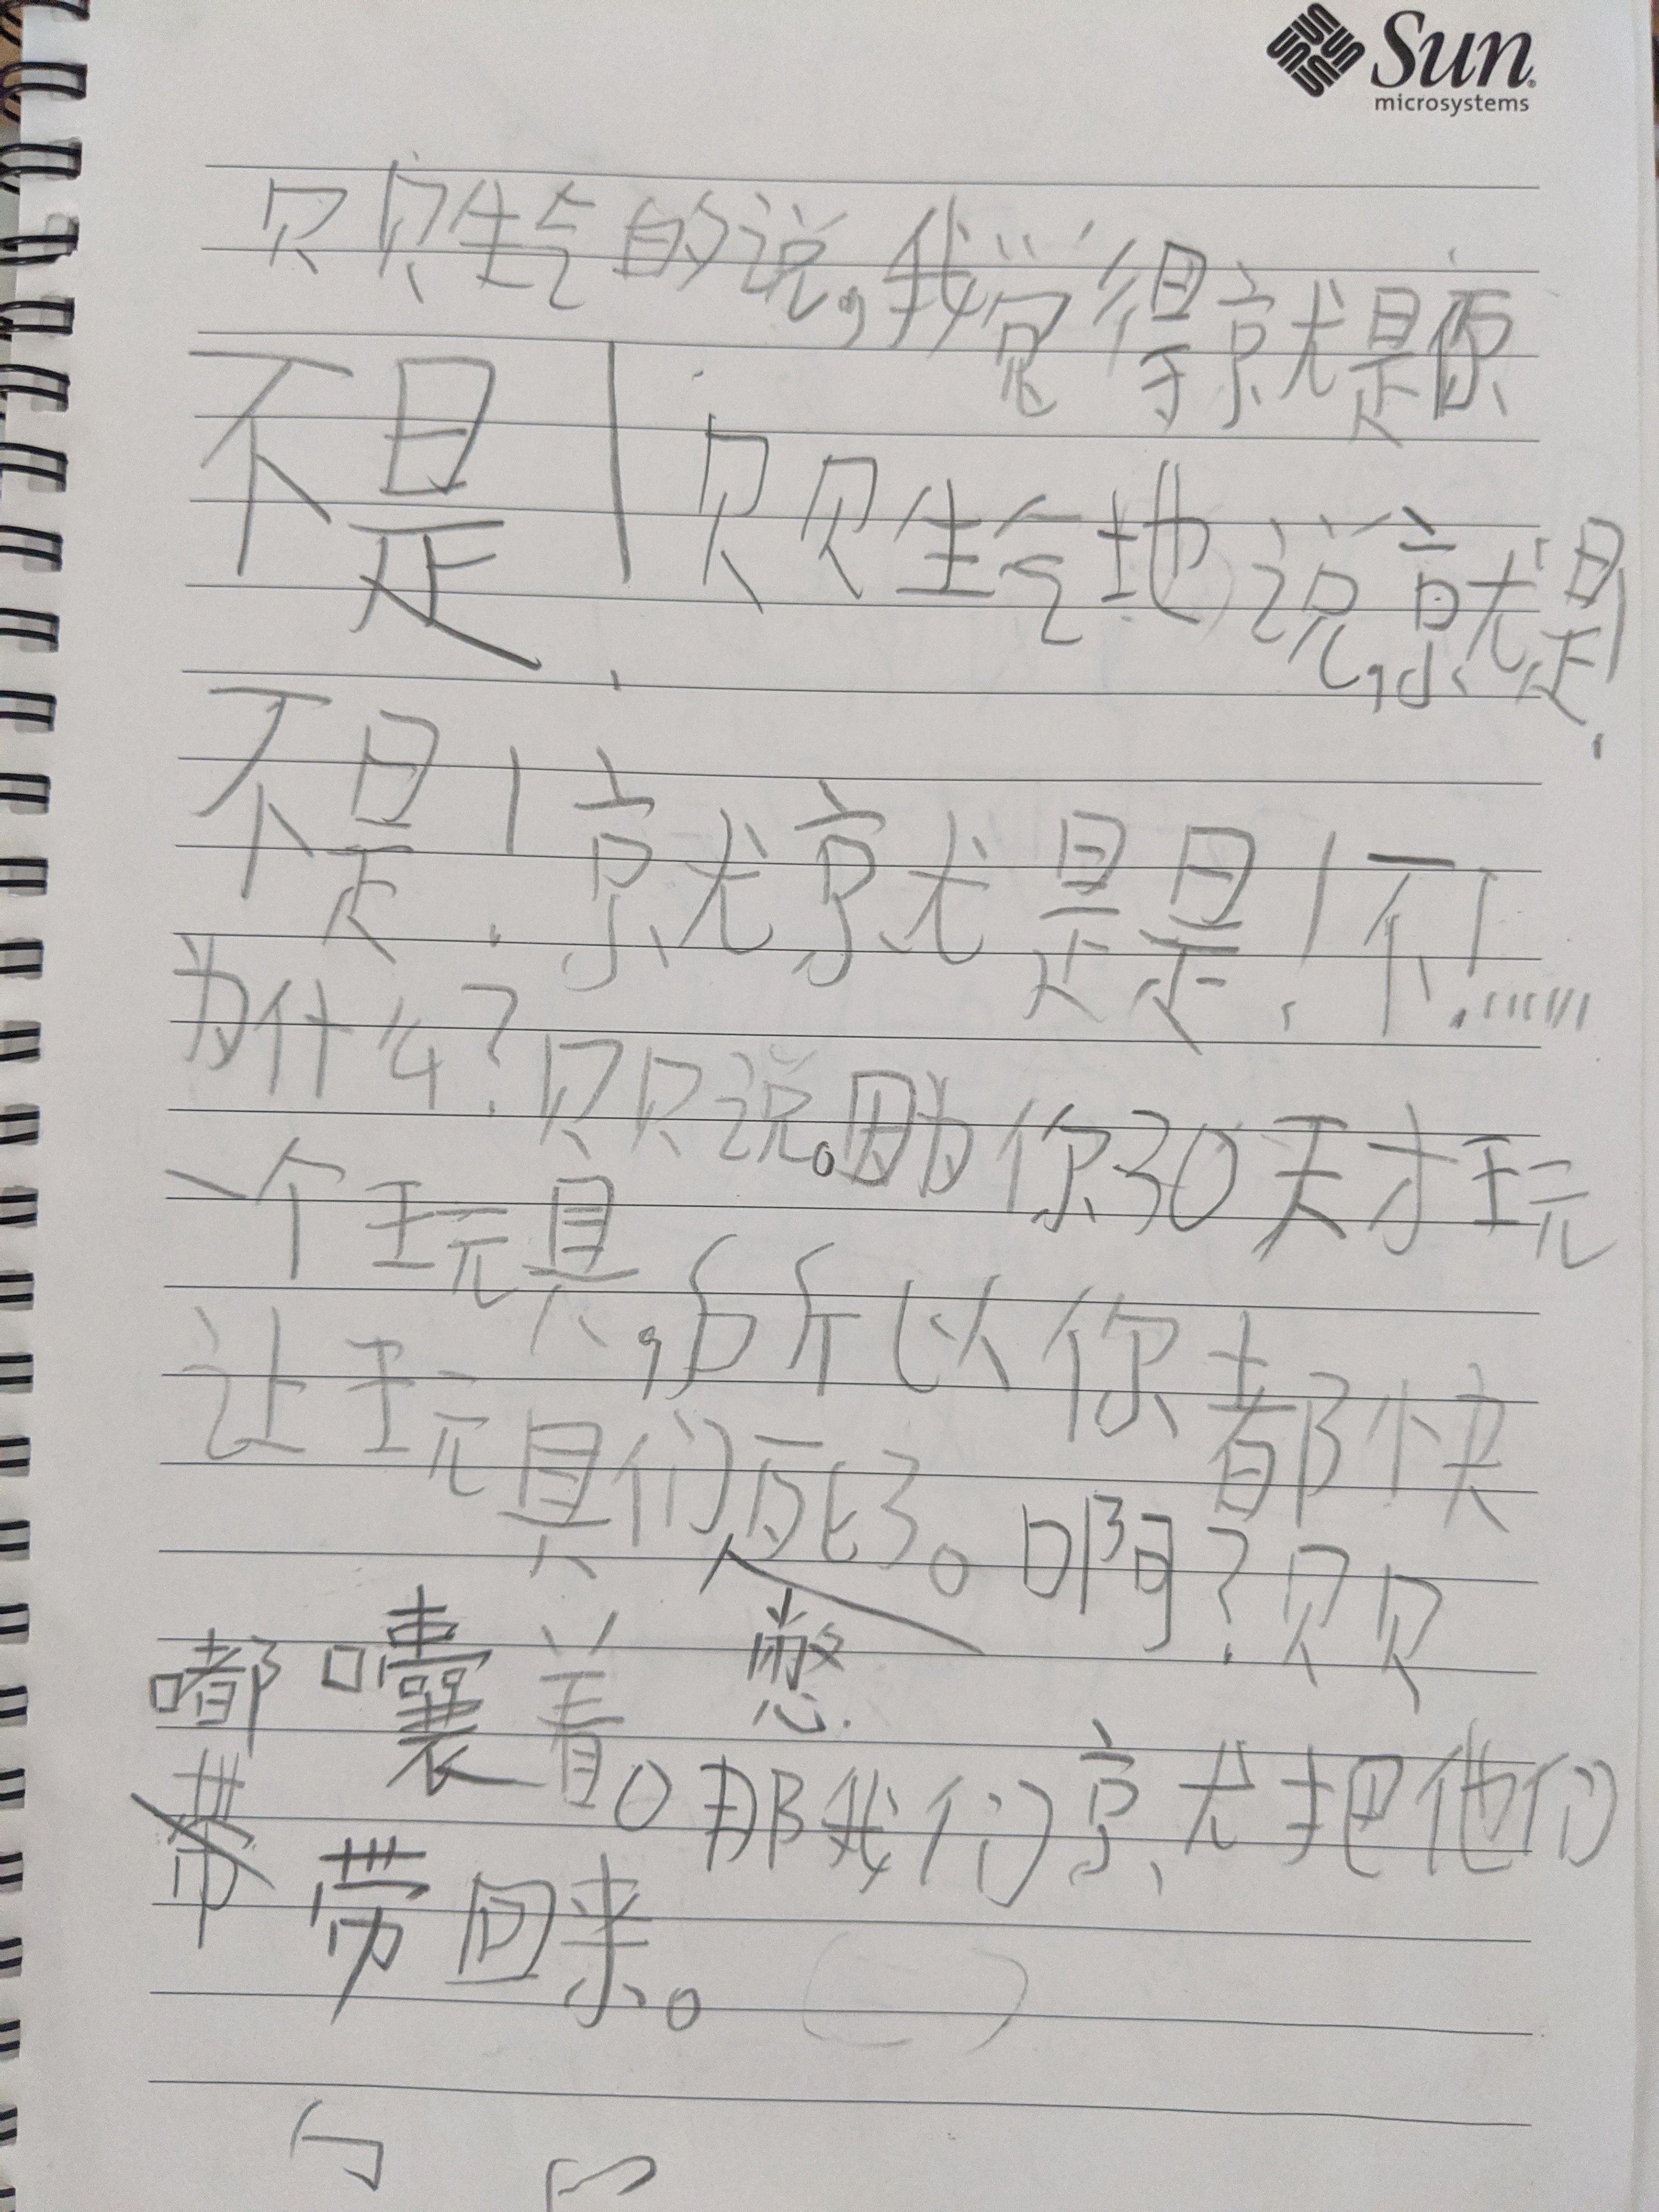 Sun
microsystems
贝贝生气的说,我觉得就是你
不是!贝贝生气地说,就是!
不是!就就是是!不!......
为什么?贝贝说。因为你30天才玩
一个玩具,所以你都快
让玩具们死了。啊?贝贝
憋
嘟囔着。那我们就把他们
带回来。